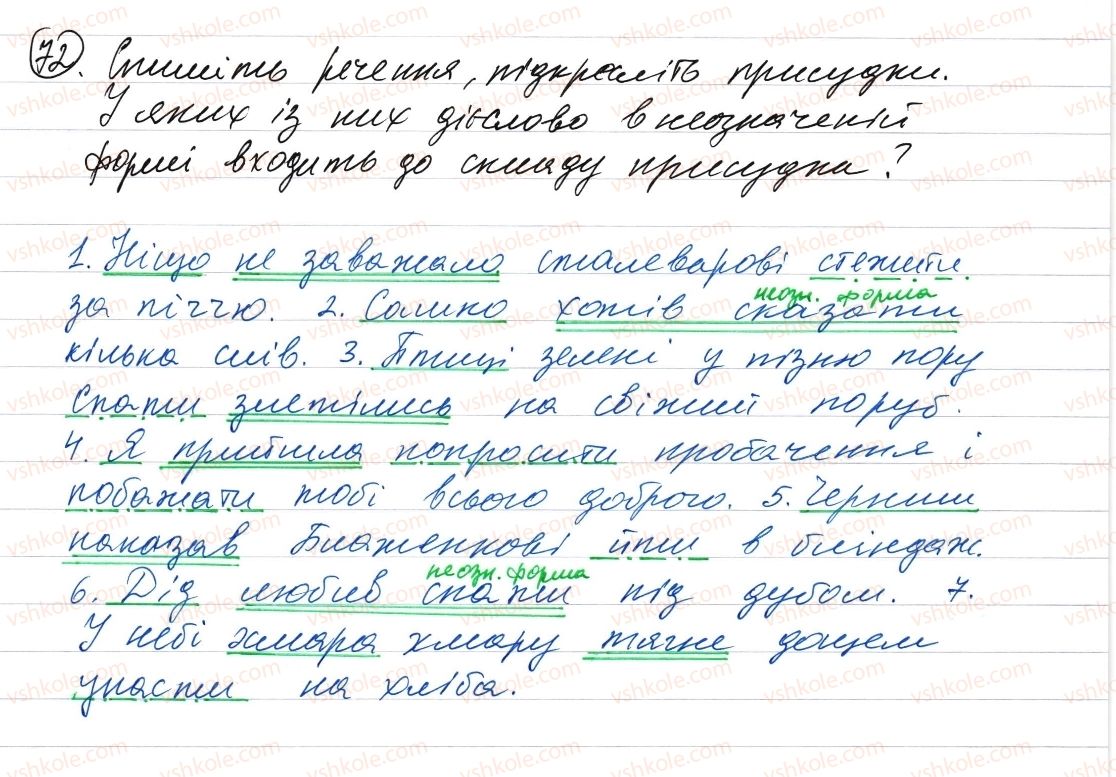 72. Спишіть речення, підкресліть присудки.
У яких із них дієслово в неозначеній
формі входить до складу присудка?
1. Ніщо не заважало сталеварові стежити
неозн. форма
за піччю. 2. Сашко хотів сказати
кілька слів. 3. Птиці зелені у пізню пору
спати злетілись на свіжий поруб.
4. Я прийшла попросити пробачення і
побажати тобі всього доброго. 5. Черниш
наказав Блаженкові йти в бліндаж.
неозн. форма
6. Дід любив спати під дубом. 7.
У небі хмара хмару тягне дощем
упасти на хліба.
vshkole.com